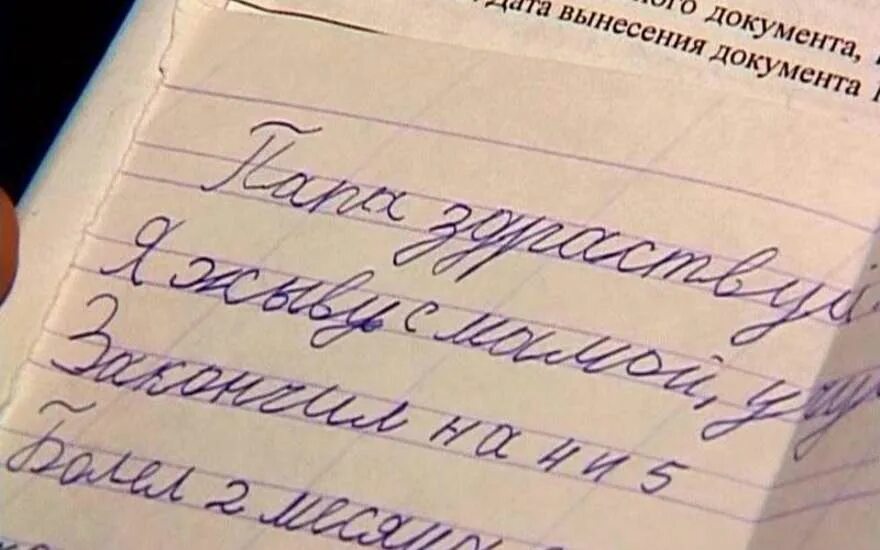 ного документа,
Дата вынесения документа
Папа здраствуй
Я жыву с мамой, учу
Закончил на 4 и 5
Болел 2 месяц